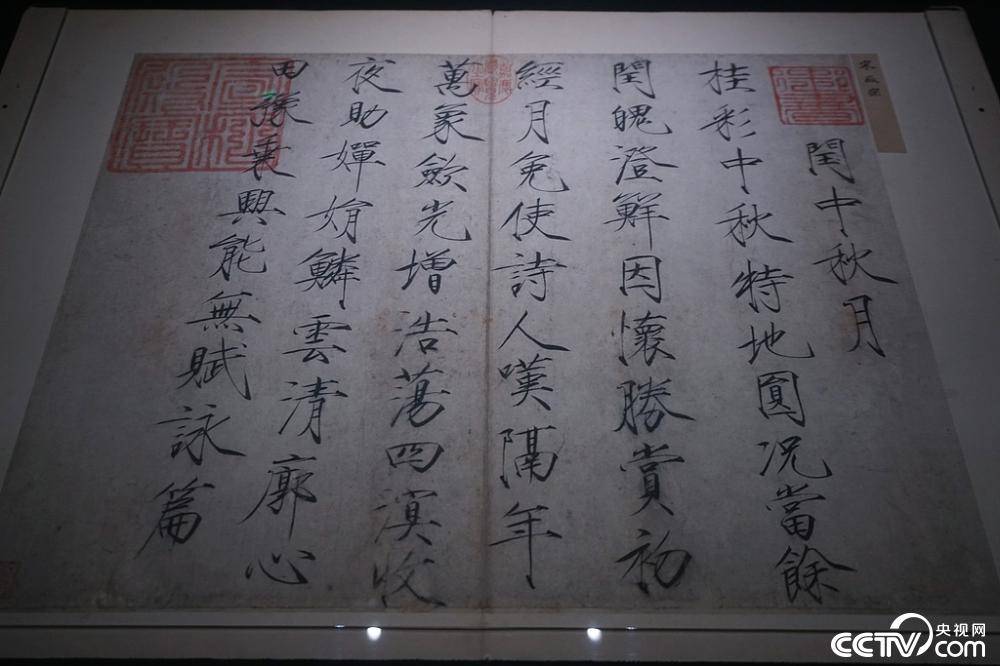 閏中秋月
桂彩中秋特地圓况當餘
閏魄澄鮮因懷勝賞初
經月免使詩人嘆隔年
萬象歛光增浩蕩四溟收
夜助嬋娟鱗雲清廓心
田豫乘興能無賦詠篇
CCTV 央视网
com